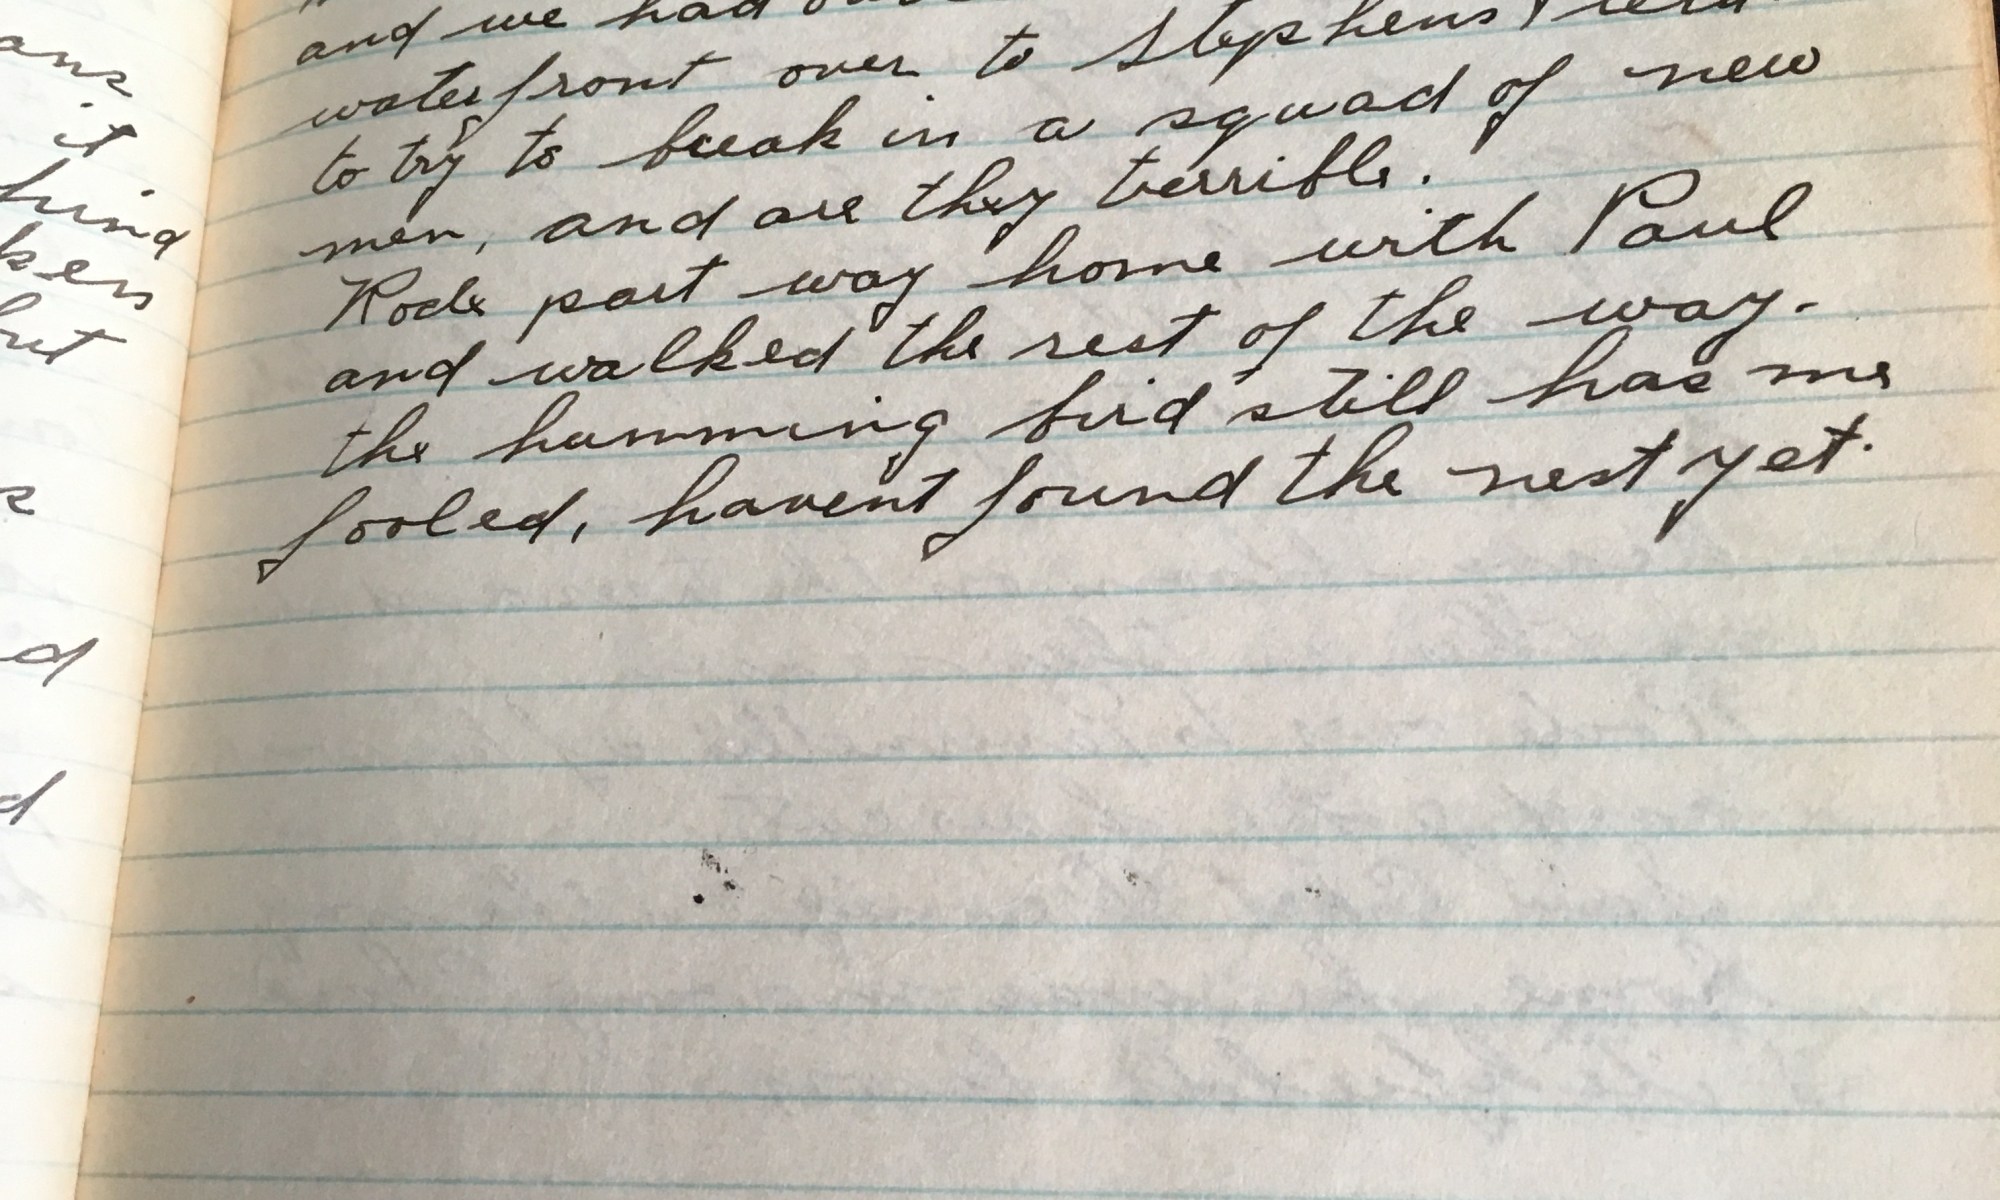 and we had
waterfront over to Stephens Field
to try to break in a squad of new
men, and are they terrible.
Rode part way home with Paul
and walked the rest of the way.
the humming bird still has me
fooled, havent found the nest yet.
it
hind
ken
but
d
d